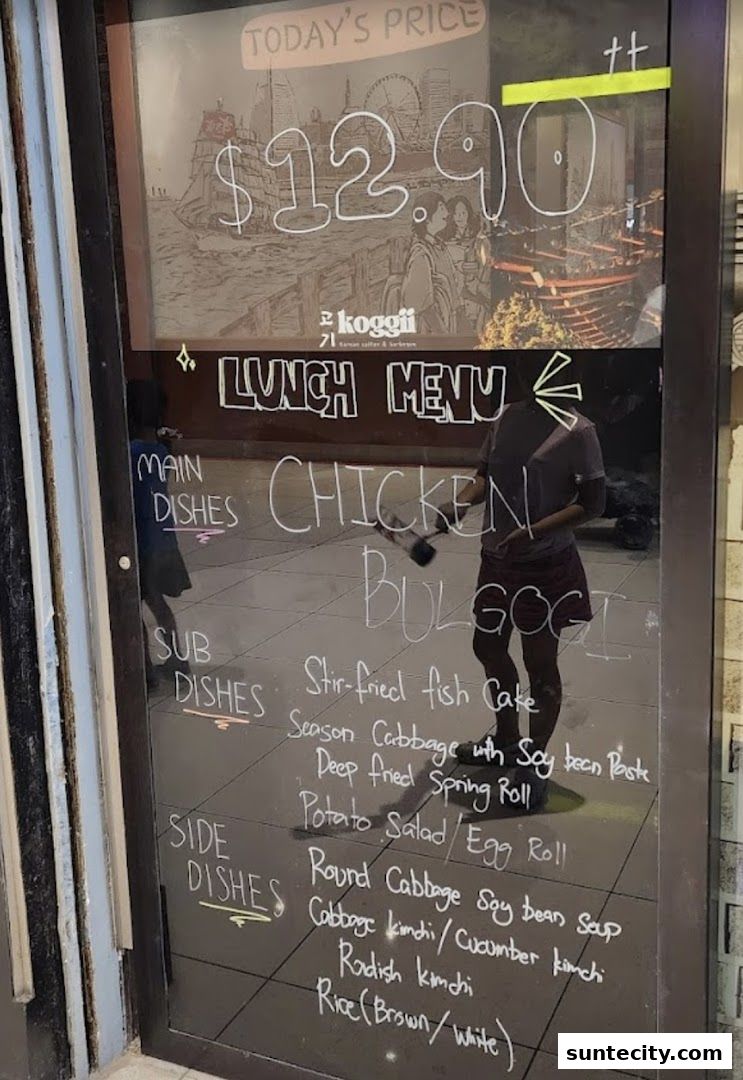 TODAY'S PRICE
++
$12.90
고기 koggii
LUNCH MENU
MAIN DISHES
CHICKEN
BULGOGI
SUB DISHES
Stir-fried fish Cake
Season Cabbage with Soy bean Paste
Deep fried Spring Roll
Potato Salad/Egg Roll
SIDE DISHES
Round Cabbage Soy bean Soup
Cabbage kimchi/Cucumber kimchi
Radish kimchi
Rice(Brown/White)
suntecity.com